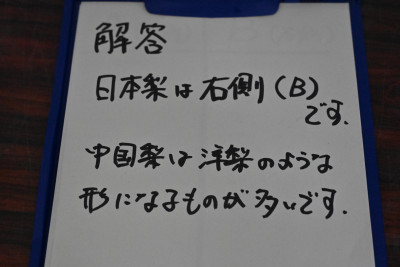 解答
日本梨は右側(B)
です.
中国梨は洋梨のような
形になるものが多いです.